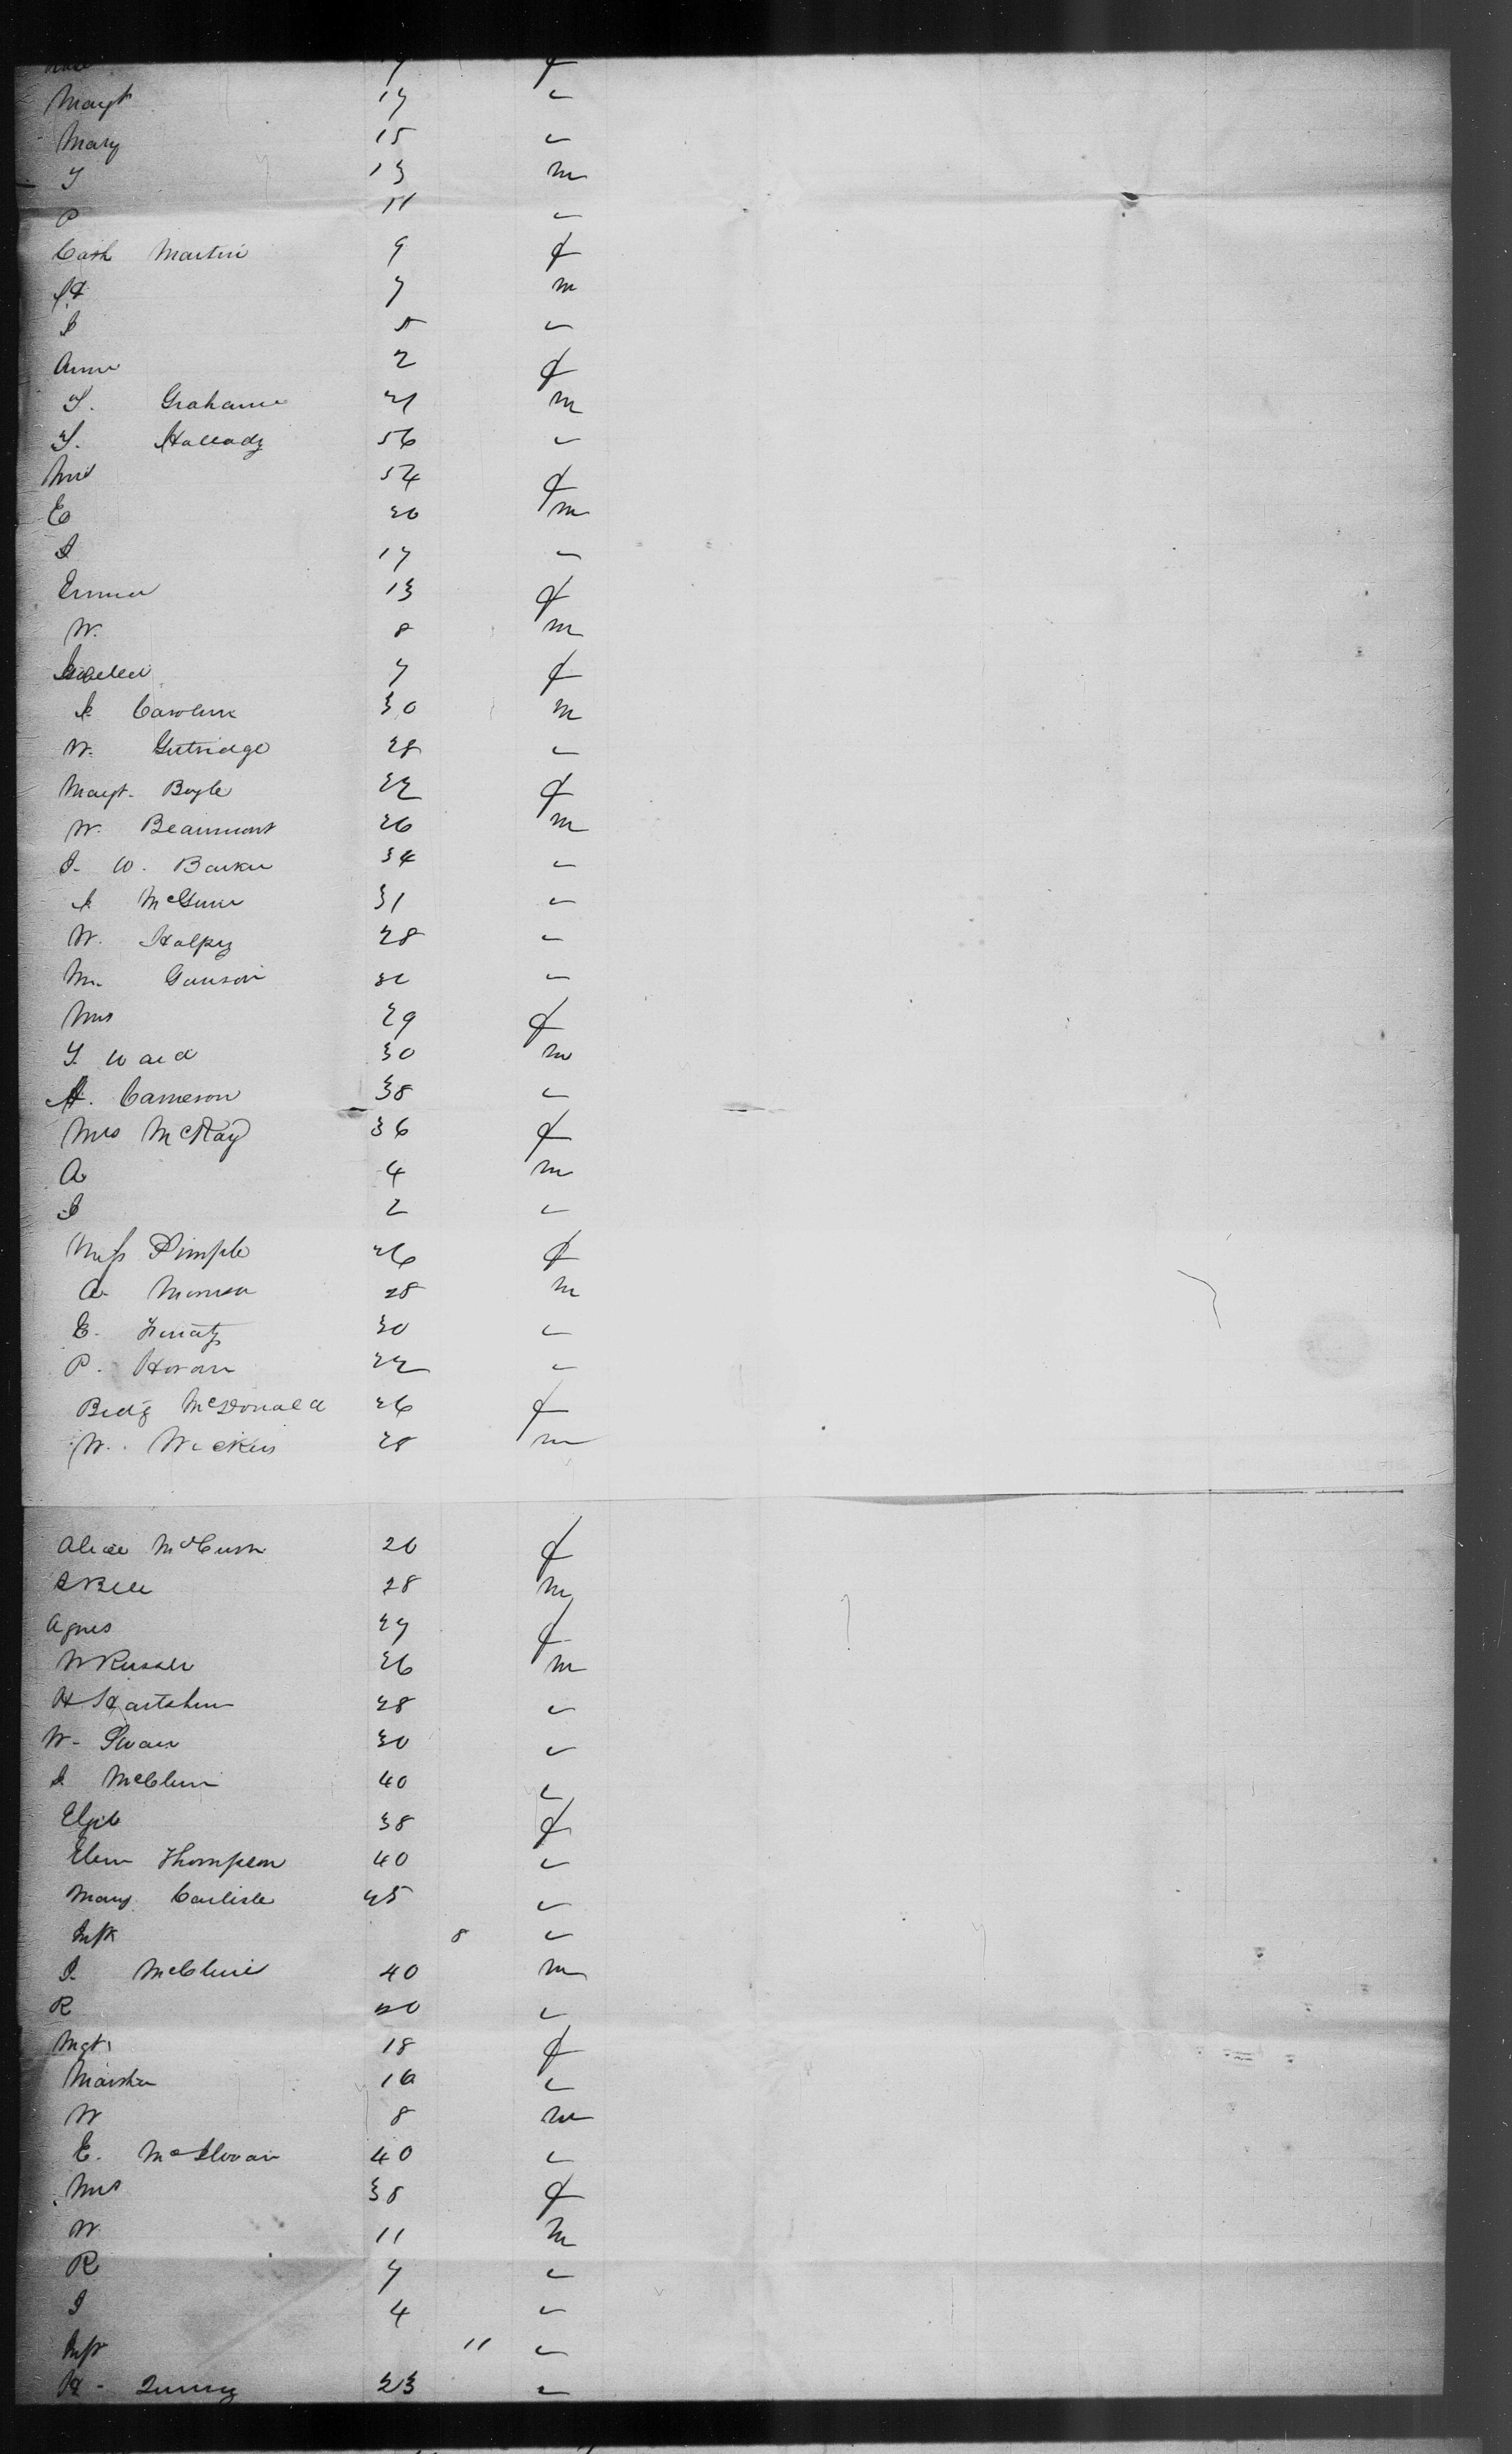 Margt 17 "
Mary 15 "
T 13 m
P 11 "
Cath Martin 9 f
7 m
J 5 "
Anne 2 f
T. Grahame 21 m
T. Hallady 56 "
Mrs 54 f
E 20 m
J 17 "
Emma 13 f
W. 8 m
Isabella 7 f
J. Caroline 30 m
W. Gutridge 28 "
Margt. Boyle 22 f
W. Beaumont 26 m
J. W. Barker 34 "
J. McGuire 31 "
W. Halpy 28 "
M. 
Mrs 29 f
T. Ward 30 m
A. Cameron 38 "
Mrs McKay 36 f
A 4 m
J 2 "
Miss Dimple 26 f
A. 28 m
30 "
P. Horan 22 "
Bidy McDonald 26 f
W. 28 m
Alice 20 f
J Bell 28 m
Agnes 27 f
W Russell 26 m
H 28 "
W. Swan 30 "
J McClure 40 "
Elizb 38 f
Ellen Thompson 40 "
Mary Carlisle 25 "
Inft 8 "
J. McClure 40 m
R 20 "
Mgt 18 f
Martha 16 "
W 8 m
E. 40 "
Mrs 38 f
W. 11 m
R 7 "
J 4 "
Inft 11 "
H. 23 "